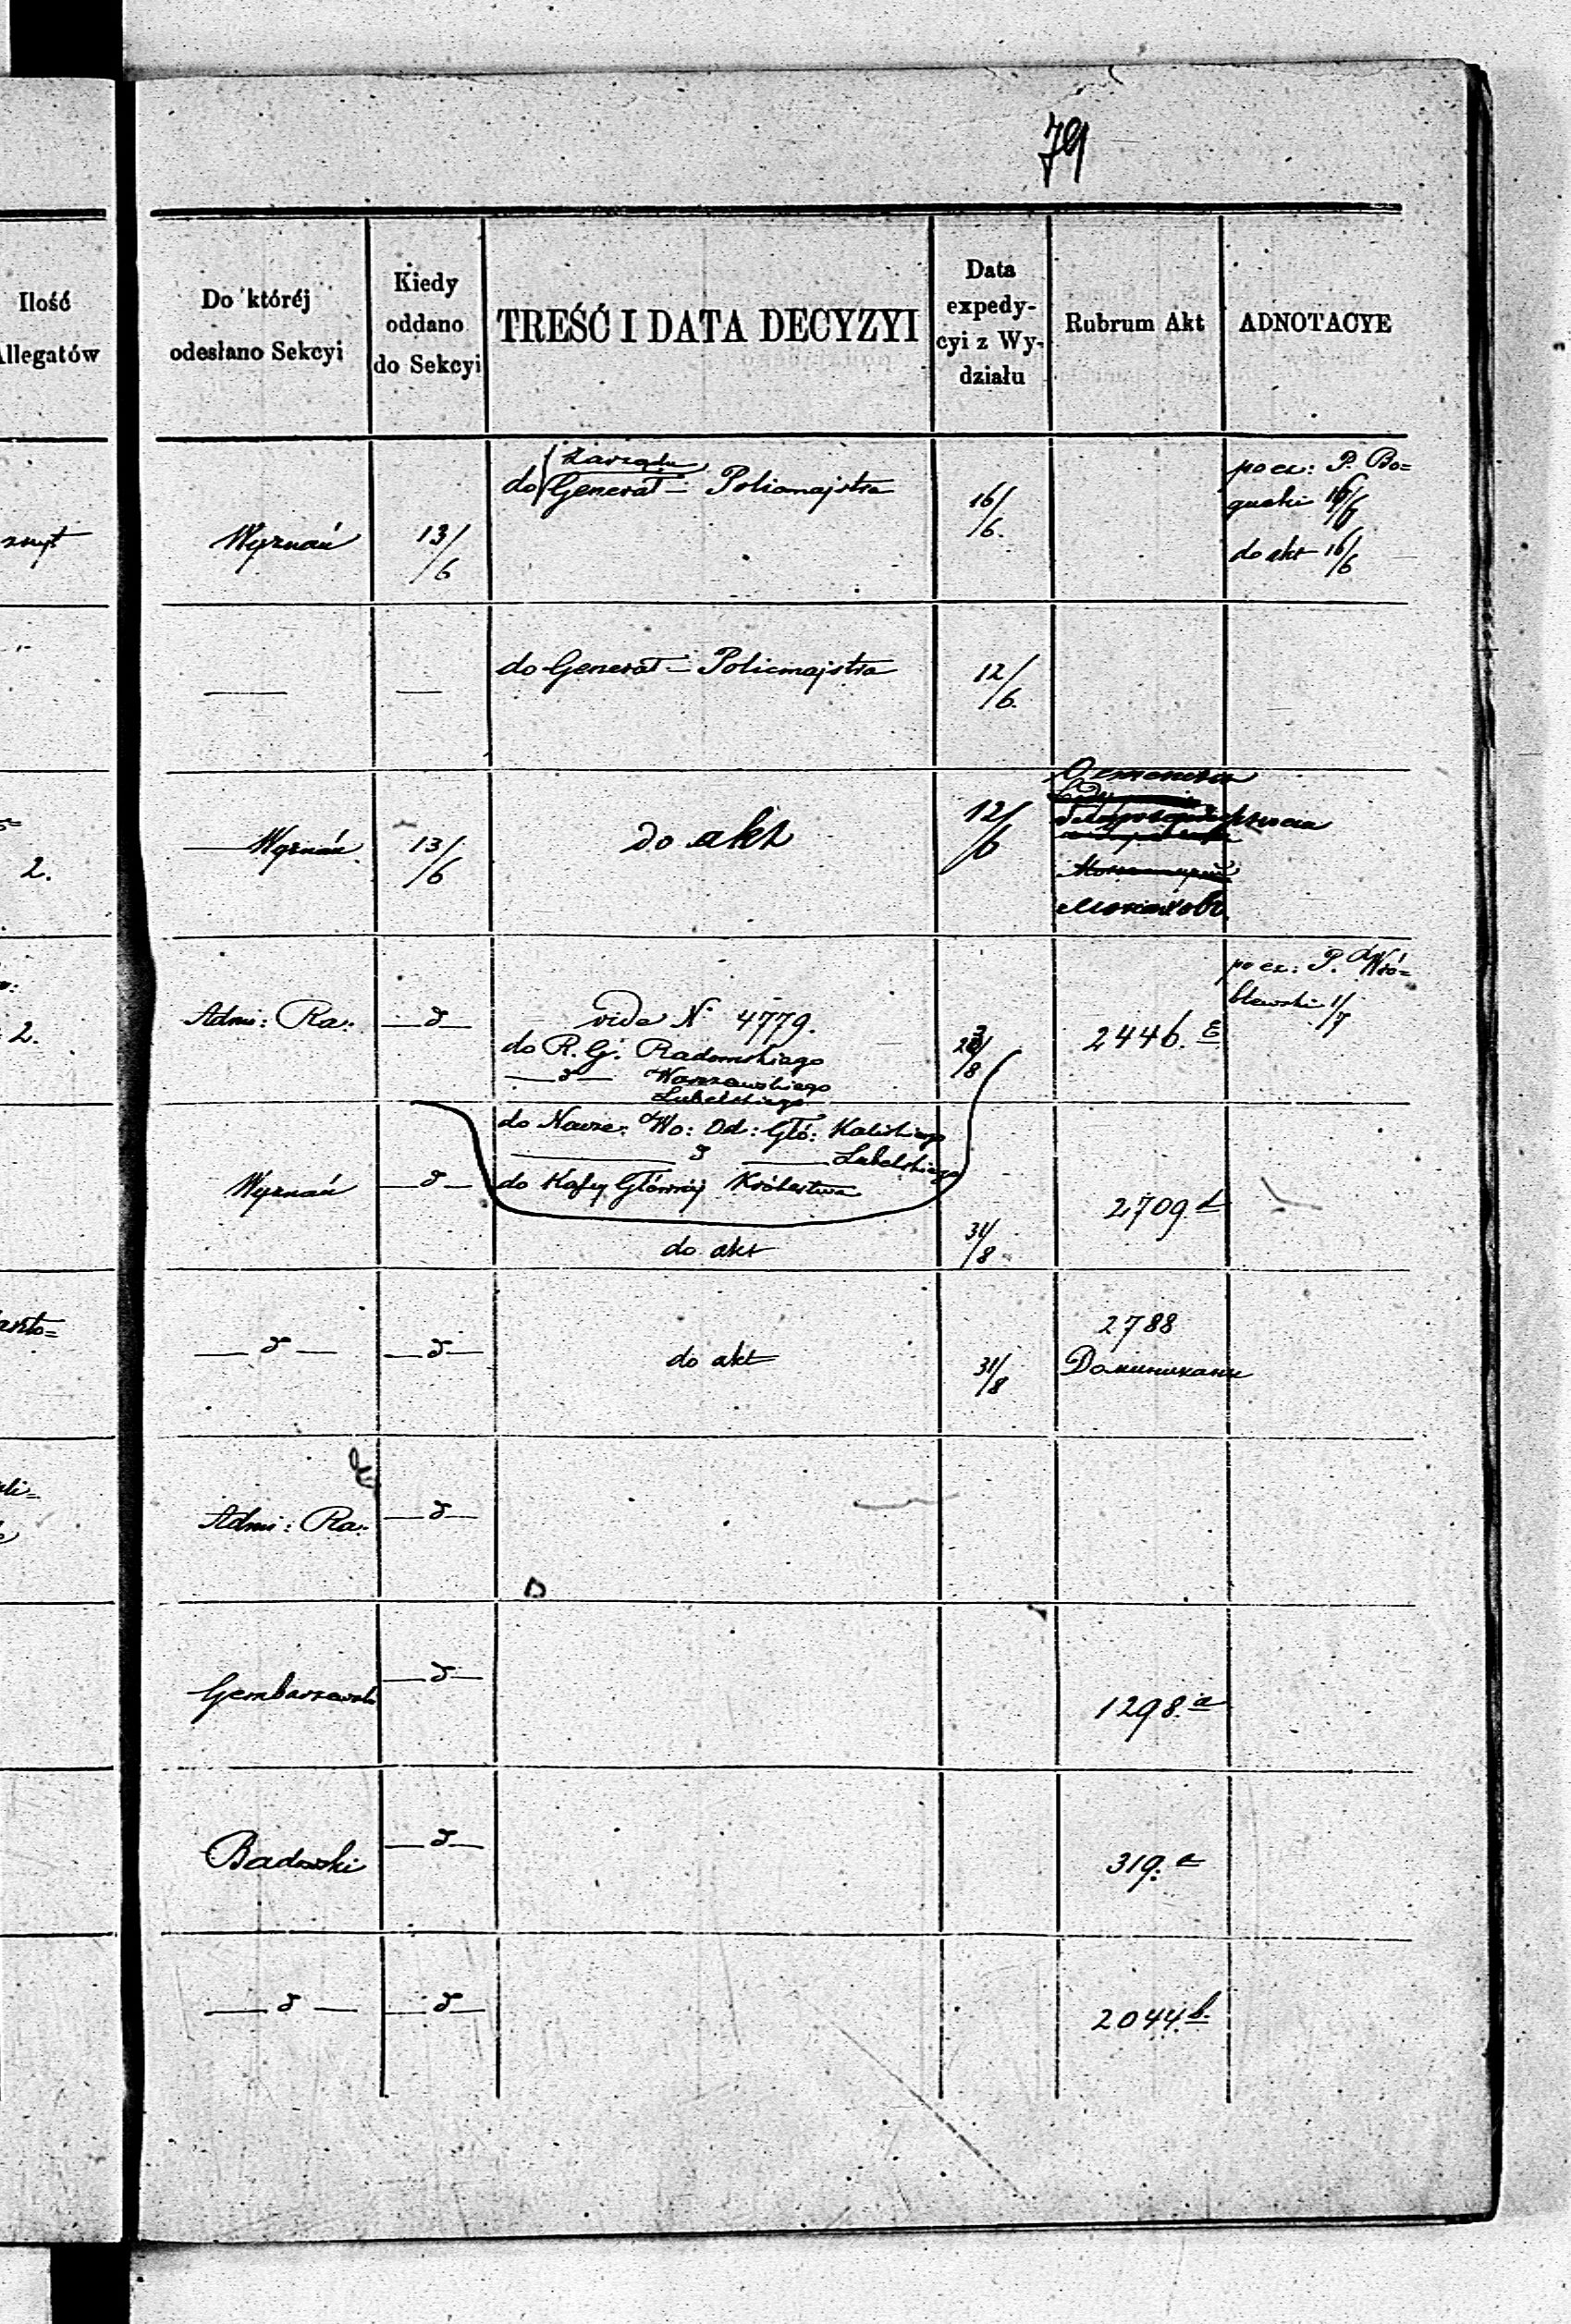 79
Ilość
Allegatów
Do któréj
odesłano Sekcyi
Kiedy
oddano
do Sekcyi
TREŚĆ I DATA DECYZYI
Data
expedy-
cyi z Wy-
działu
Rubrum Akt
ADNOTACYE
Wyznań
13/6
Zarządu
do Generał - Policmajstra
16/6.
po ex: P. Bo=
gucki 16/6
do akt 16/6
do Generał - Policmajstra
12/6.
2.
Wyznań
13/6
do akt
12/6
2.
Admi: Ra:
— d —
vide N 4779.
do R. G. Radomskiego
— d — Warszawskiego
Lubelskiego
do Nacze: Wo: Od: Głó: Kaliskiego
— d — Lubelskiego
do Kasy Głównéj Królestwa
/8
2446. E
po ex: P. Wró=
blewski 1/7
Wyznań
— d —
do akt
31/8
2709. d
— d —
— d —
do akt
31/8
2788
Доминикане
Admi: Ra:
— d —
Gembarzewski
— d —
1298. a
Badowski
— d —
319. a
— d —
— d —
2044. b.